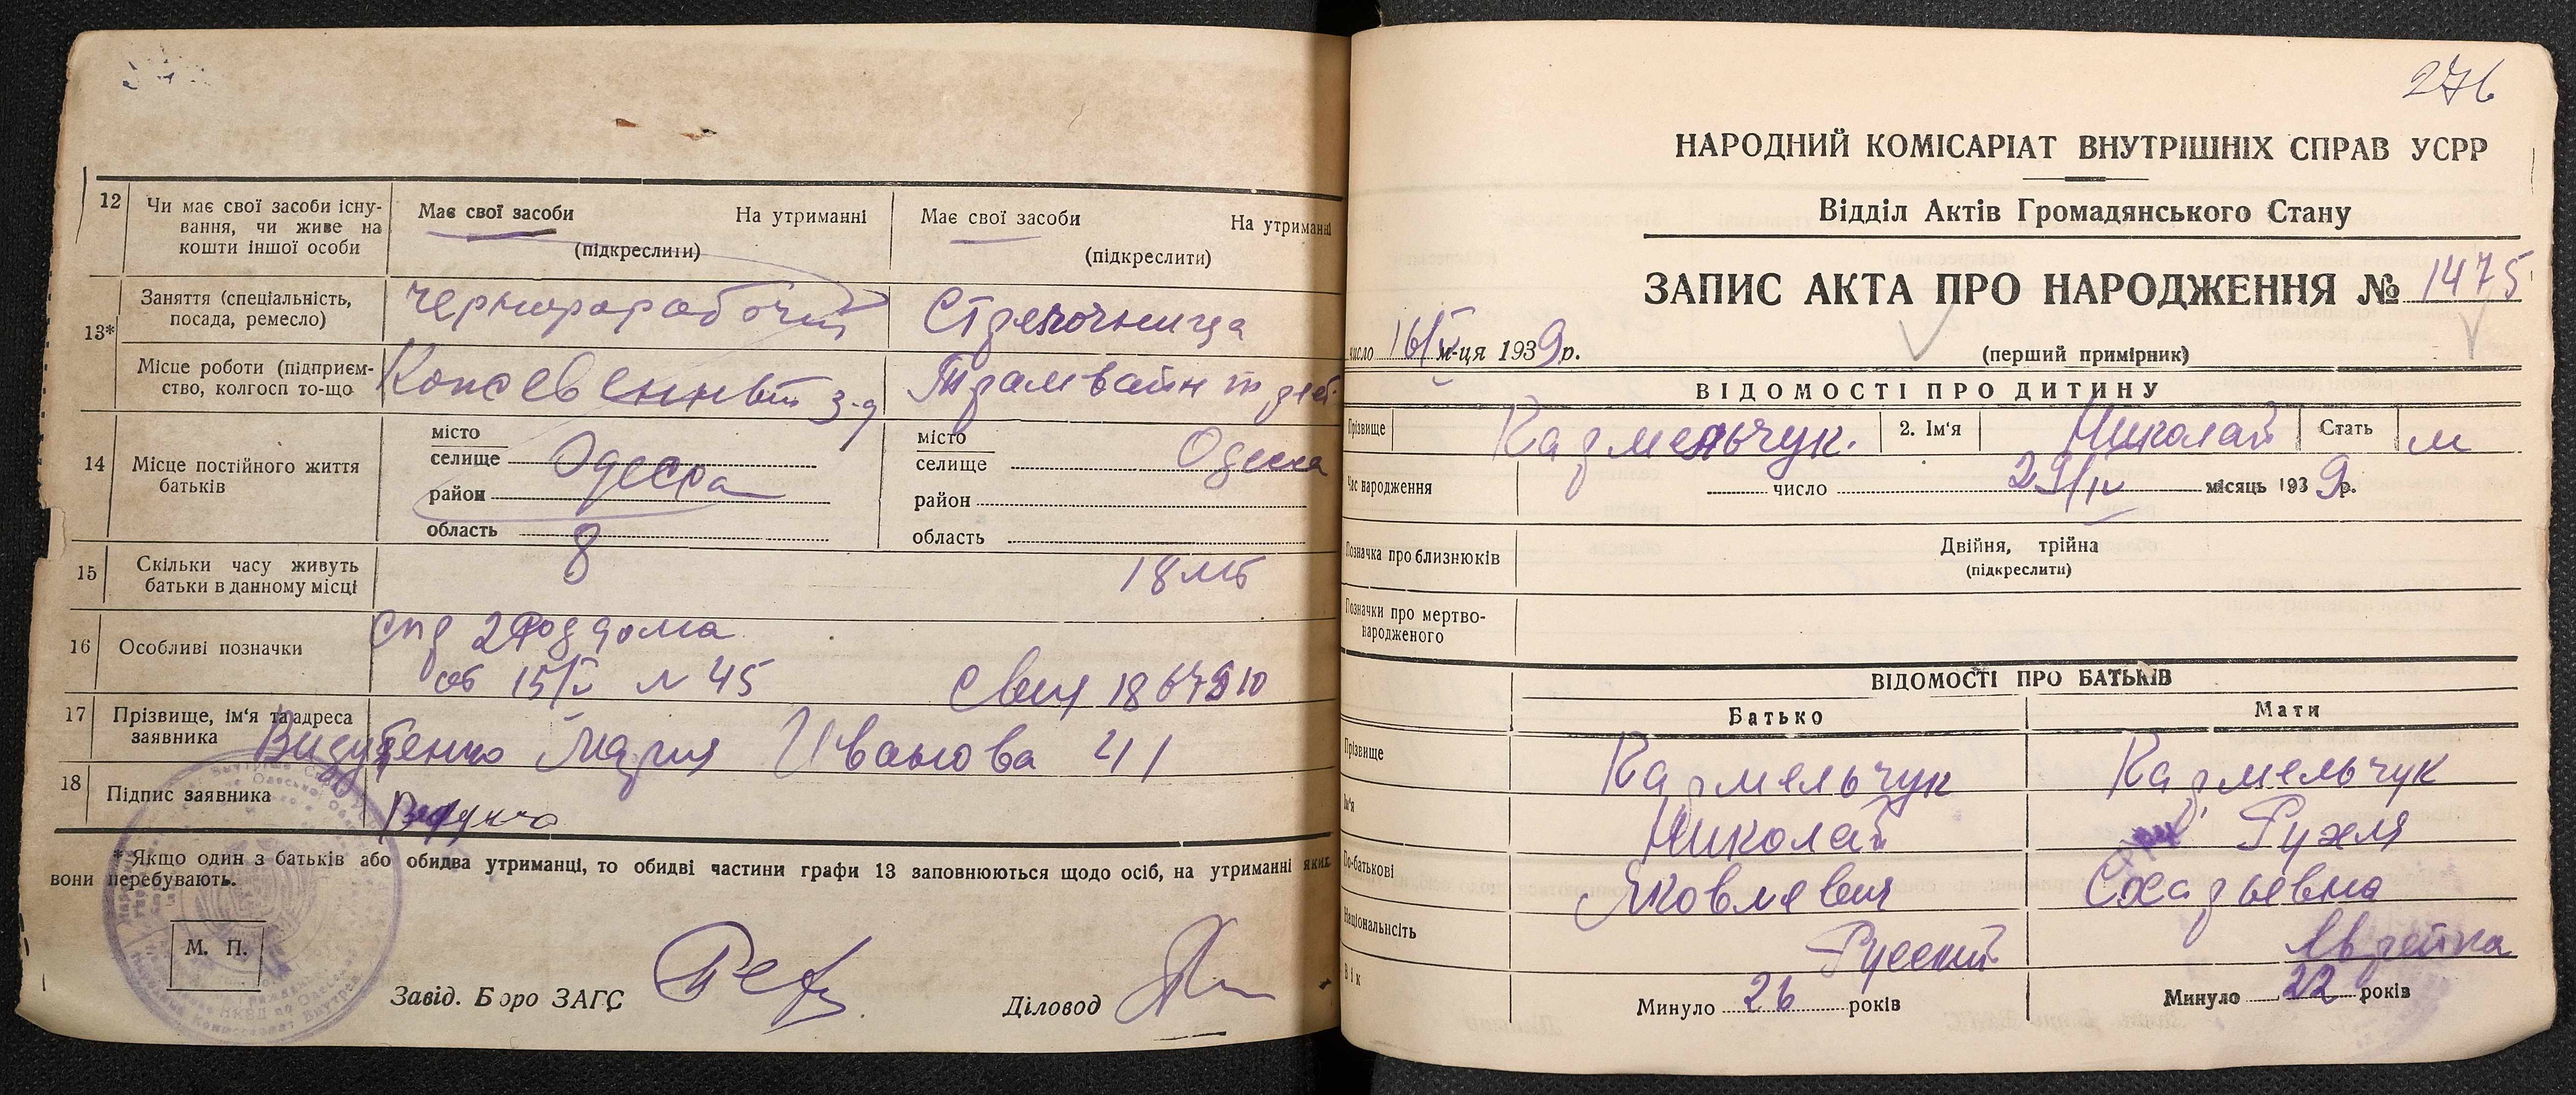 12 Чи має свої засоби існу-
вання, чи живе на
кошти іншої особи
Має свої засоби На утриманні
(підкреслити)
Має свої засоби На утриманні
(підкреслити)
13*
Заняття (спеціальність,
посада, ремесло)
чернорабочий
Стрелочница
Місце роботи (підприєм-
ство, колгосп то-що
з-д
14 Місце постійного життя
батьків
місто
селище Одесса
район
область
місто
селище Одесса
район
область
15 Скільки часу живуть
батьки в данному місці
8
18 лет
16 Особливі позначки
роддома
15/V N 45
17 Прізвище, ім'я та адреса
заявника
Мария Иванова 41
18 Підпис заявника
* Якщо один з батьків або обидва утриманці, то обидві частини графи 13 заповнюються щодо осіб, на утриманні яких
вони перебувають.
М. П.
Завід. Бюро ЗАГС
Діловод
276
НАРОДНИЙ КОМІСАРІАТ ВНУТРІШНІХ СПРАВ УСРР
Відділ Актів Громадянського Стану
ЗАПИС АКТА ПРО НАРОДЖЕННЯ № 1475
число 16/V м-ця 1939р.
(перший примірник)
ВІДОМОСТІ ПРО ДИТИНУ
Прізвище Кармельчук. 2. Ім'я Николай Стать м
Час народження число 29/IV місяць 1939р.
Позначка про близнюків
Двійня, трійна
(підкреслити)
Позначки про мертво-
народженого
ВІДОМОСТІ ПРО БАТЬКІВ
Батько Мати
Прізвище Кармельчук Кармельчук
Ім'я Николай Рухля
По-батькові Яковлевич
Національність Русский Еврейка
Вік Минуло 26 років Минуло 22 років